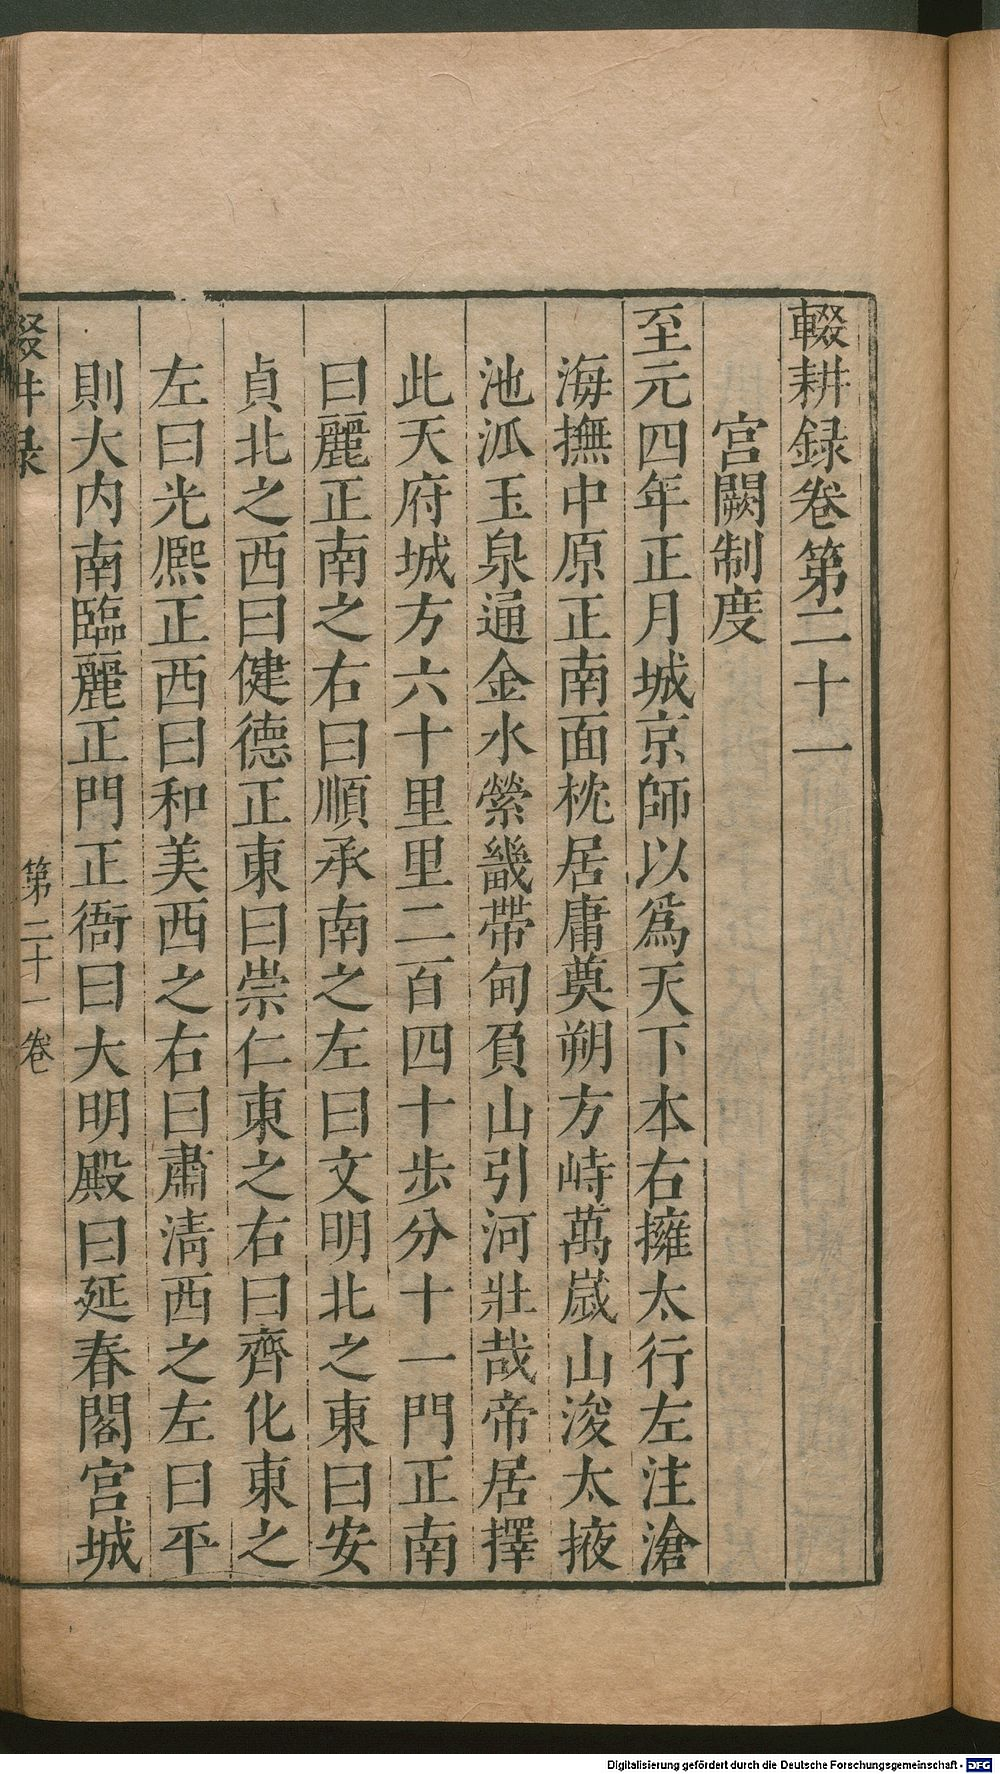 輟耕録卷第二十一
宮闕制度
至元四年正月城京師以爲天下本右擁太行左注滄
海撫中原正南面枕居庸奠朔方峙萬嵗山浚太掖
池派玉泉通金水縈畿帶甸負山引河壯哉帝居擇
此天府城方六十里里二百四十步分十一門正南
曰麗正南之右曰順承南之左曰文明北之東曰安
貞北之西曰健德正東曰崇仁東之右曰齊化東之
左曰光熈正西曰和美西之右曰肅清西之左曰平
則大内南臨麗正門正衙曰大明殿曰延春閣宮城
輟耕录
第二十一卷
Digitalisierung gefördert durch die Deutsche Forschungsgemeinschaft - DFG